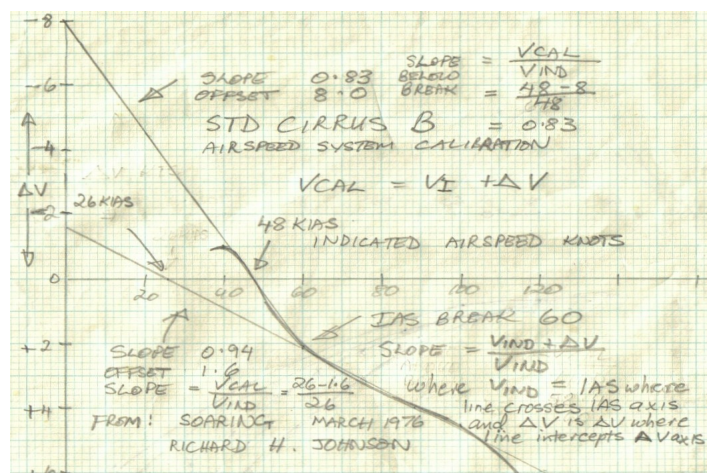 -8
SLOPE 0.83
OFFSET 8.0
SLOPE BELOW BREAK = VCAL / VIND
= 48-8 / 48
= 0.83
-6
STD CIRRUS B
AIRSPEED SYSTEM CALIBRATION
-4
VCAL = VI + ΔV
ΔV
26 KIAS
-2
48 KIAS
INDICATED AIRSPEED KNOTS
0
20 40 60 80 100 120
IAS BREAK 60
+2
SLOPE 0.94
OFFSET 1.6
SLOPE = VCAL / VIND = 26-1.6 / 26
SLOPE = VIND + ΔV / VIND
where VIND = IAS where
line crosses IAS axis
and ΔV is ΔV where
line intercepts ΔV axis
+4
FROM: SOARING MARCH 1976
RICHARD H. JOHNSON